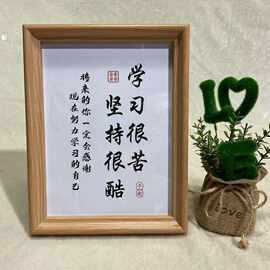 学习很苦
坚持很酷
将来的你一定会感谢
现在努力学习的自己
LOVE
Love